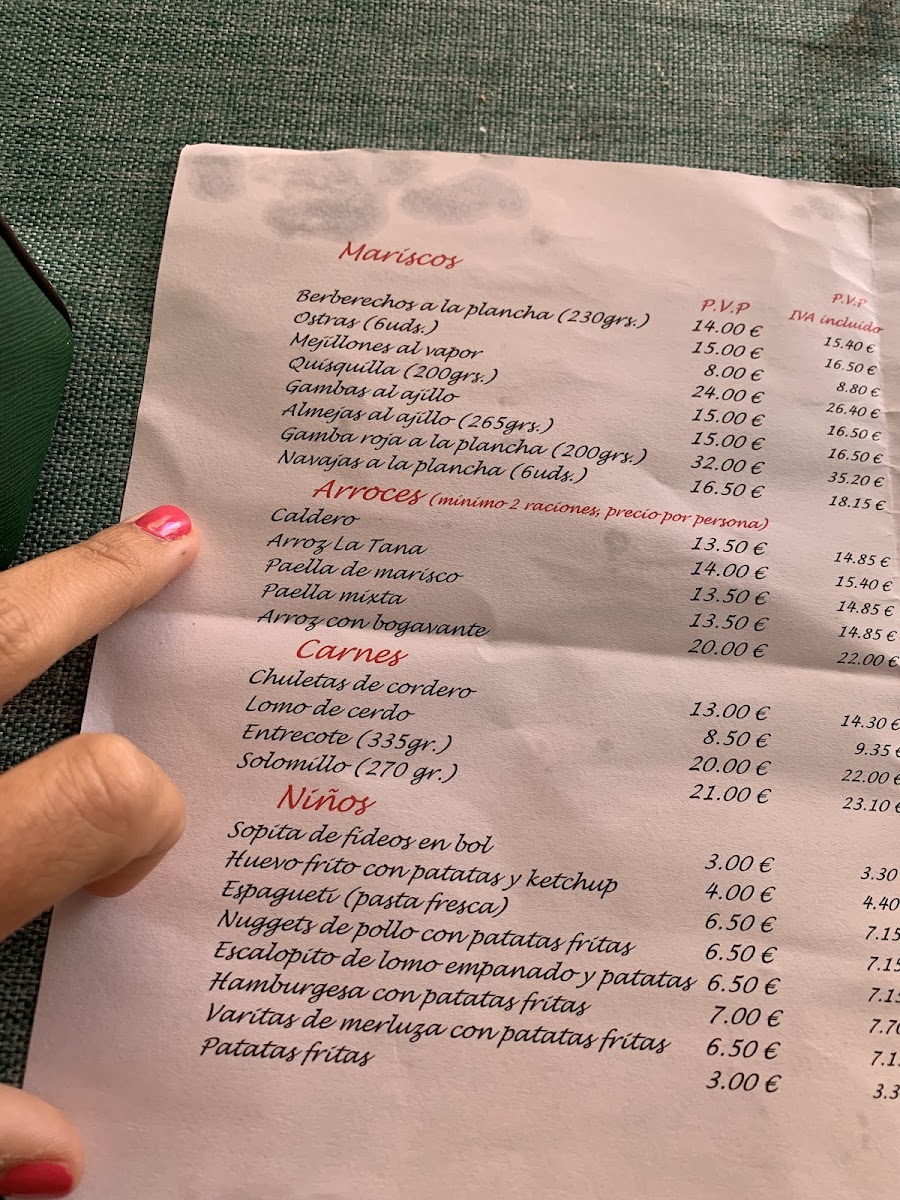 Mariscos
P.V.P P.V.P
IVA incluido
Berberechos a la plancha (230grs.) 14.00 € 15.40 €
Ostras (6uds.) 15.00 € 16.50 €
Mejillones al vapor 8.00 € 8.80 €
Quisquilla (200grs.) 24.00 € 26.40 €
Gambas al ajillo 15.00 € 16.50 €
Almejas al ajillo (265grs.) 15.00 € 16.50 €
Gamba roja a la plancha (200grs.) 32.00 € 35.20 €
Navajas a la plancha (6uds.) 16.50 € 18.15 €
Arroces (mínimo 2 raciones, precio por persona)
Caldero 13.50 € 14.85 €
Arroz La Tana 14.00 € 15.40 €
Paella de marisco 13.50 € 14.85 €
Paella mixta 13.50 € 14.85 €
Arroz con bogavante 20.00 € 22.00 €
Carnes
Chuletas de cordero 13.00 € 14.30 €
Lomo de cerdo 8.50 € 9.35 €
Entrecote (335gr.) 20.00 € 22.00 €
Solomillo (270 gr.) 21.00 € 23.10 €
Niños
Sopita de fideos en bol 3.00 € 3.30
Huevo frito con patatas y ketchup 4.00 € 4.40
Espagueti (pasta fresca) 6.50 € 7.15
Nuggets de pollo con patatas fritas 6.50 € 7.15
Escalopito de lomo empanado y patatas 6.50 € 7.15
Hamburgesa con patatas fritas 7.00 € 7.70
Varitas de merluza con patatas fritas 6.50 € 7.1
Patatas fritas 3.00 € 3.3